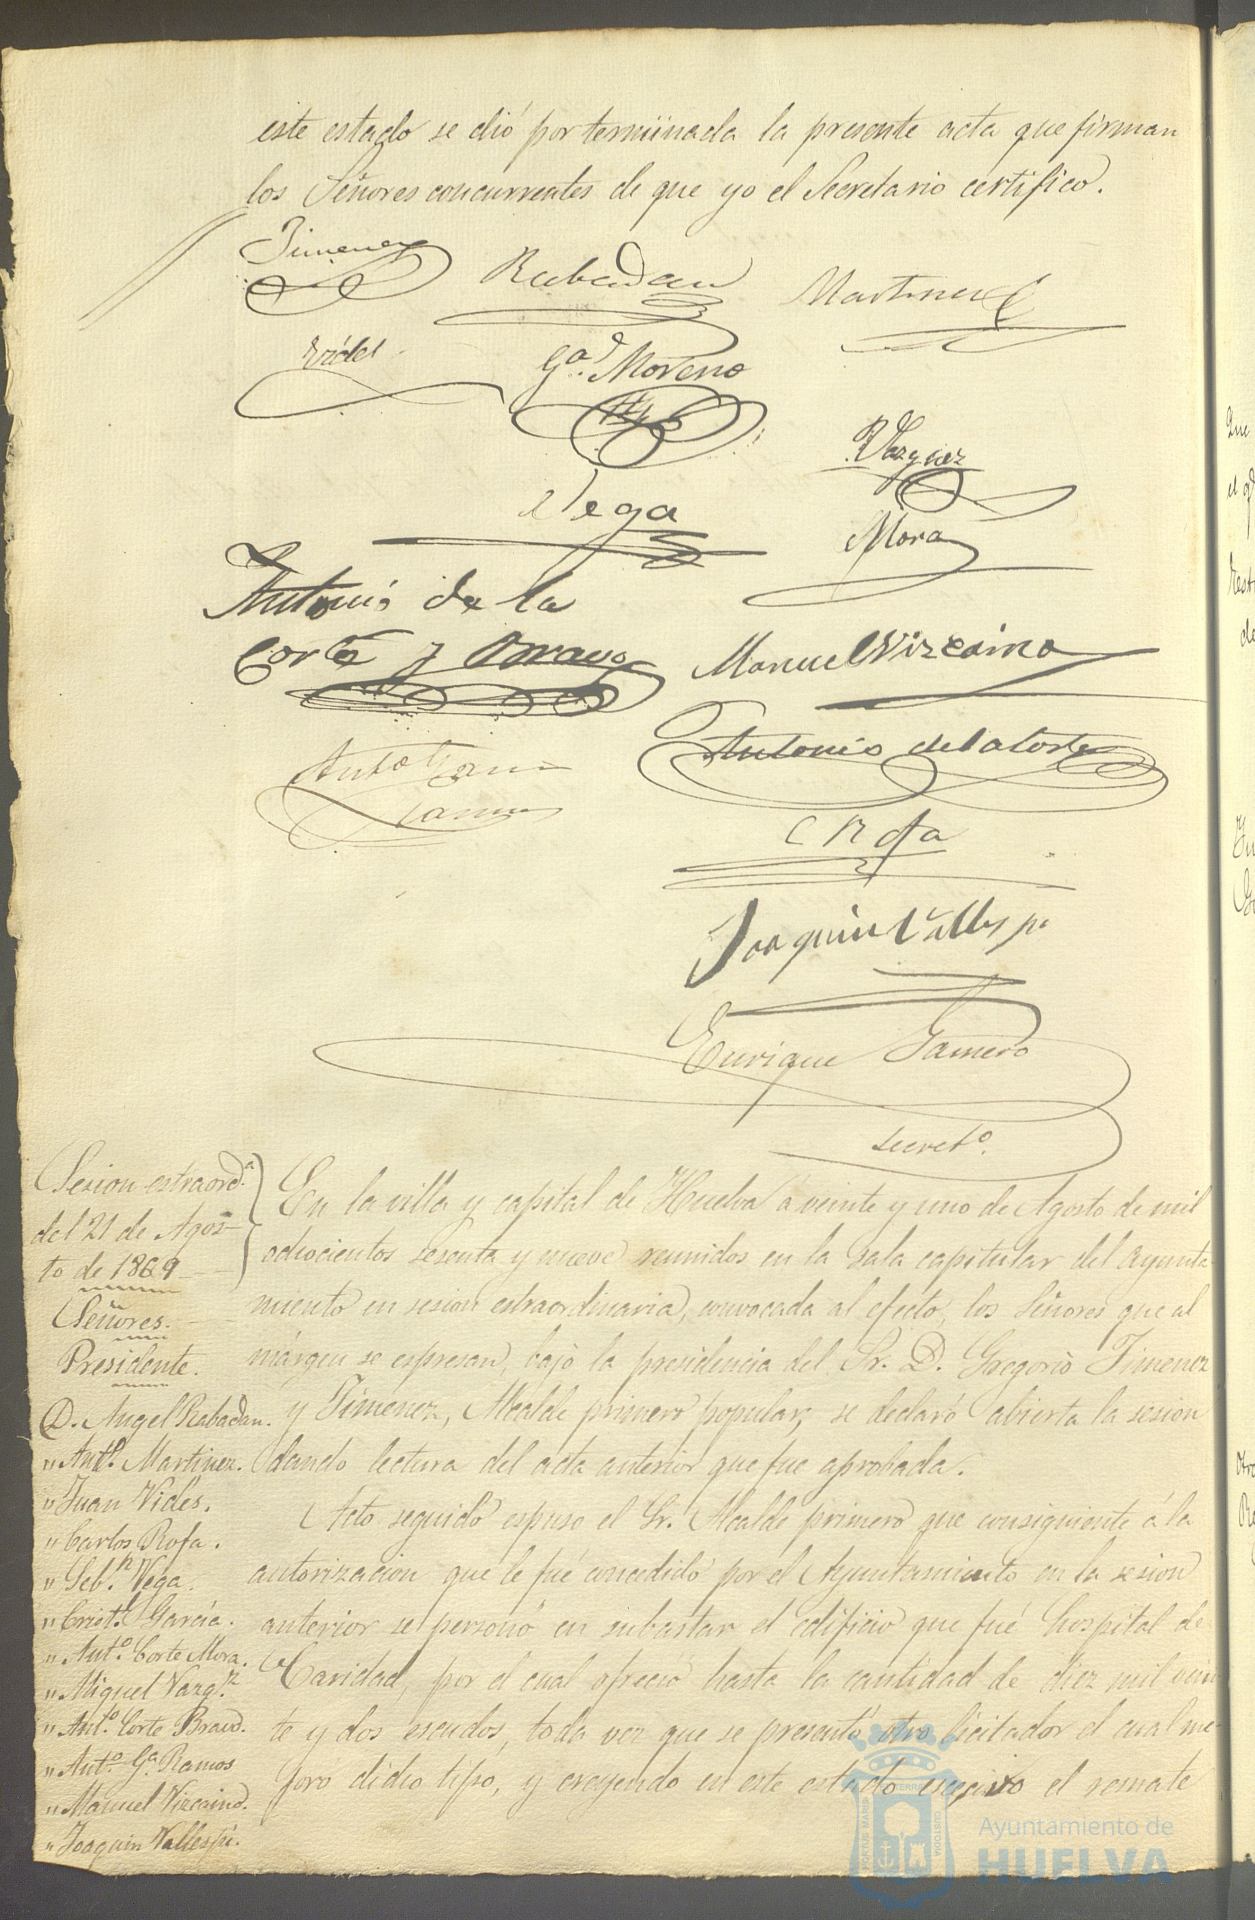 este estado se dió por terminada la presente acta que firman
los Señores concurrentes de que yo el Secretario certifico.
Jimenez
Rabadan
Martinez
Vides
Ga. Moreno
Vazquez
Vega
Mora
Antonio de la
Corte y Bravo
Manuel Vizcaino
Antonio de la Corte
Anto Garcia
Ramos
C Rofa
Joaquin Vallespi
Enrique Gamero
Secreto.
Sesion estraorda.
del 21 de Agos-
to de 1869
Señores.
Presidente.
D. Angel Rabadan.
" Anto. Martinez.
" Juan Vides.
" Carlos Rofa.
" Sebn. Vega.
" Cristl. Garcia.
" Anto. Corte Mora.
" Miguel Vazqz.
" Anto. Corte Bravo.
" Anto. Ga. Ramos
" Manuel Vizcaino.
" Joaquin Vallespi.
En la villa y capital de Huelva a veinte y uno de Agosto de mil
ochocientos sesenta y nueve reunidos en la sala capitular del Ayunta-
miento en sesion estraordinaria, convocada al efecto, los Señores que al
márgen se espresan, bajo la presidencia del Sr. D. Gregorio Jimenez
y Jimenez, Alcalde primero popular, se declaró abierta la sesion
dando lectura del acta anterior que fue aprobada.
Acto seguido espuso el Sr. Alcalde primero que consiguiente á la
autorizacion que le fué concedida por el Ayuntamiento en la sesion
anterior se personó en subastar el edificio que fué hospital de
Caridad, por el cual ofreció hasta la cantidad de diez mil vein
te y dos escudos, toda vez que se presentó otro licitador el cual me-
joró dicho tipo, y creyendo en este estado escesivo el remate
Ayuntamiento de
HUELVA